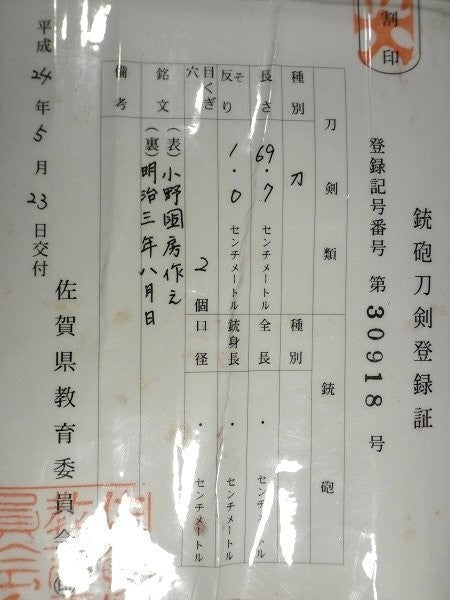 銃砲刀剣登録証
割印
登録記号番号 第 30918 号
刀剣類
種別 刀
長さ 69.7 センチメートル
そり 反り 1.0 センチメートル
目くぎ穴 2個
銘文 (表) 小野国房作之
(裏) 明治三年八月日
備考
銃砲
種別
全長 . センチメートル
銃身長 . センチメートル
口径 . センチメートル
平成24年5月23日交付
佐賀県教育委員会